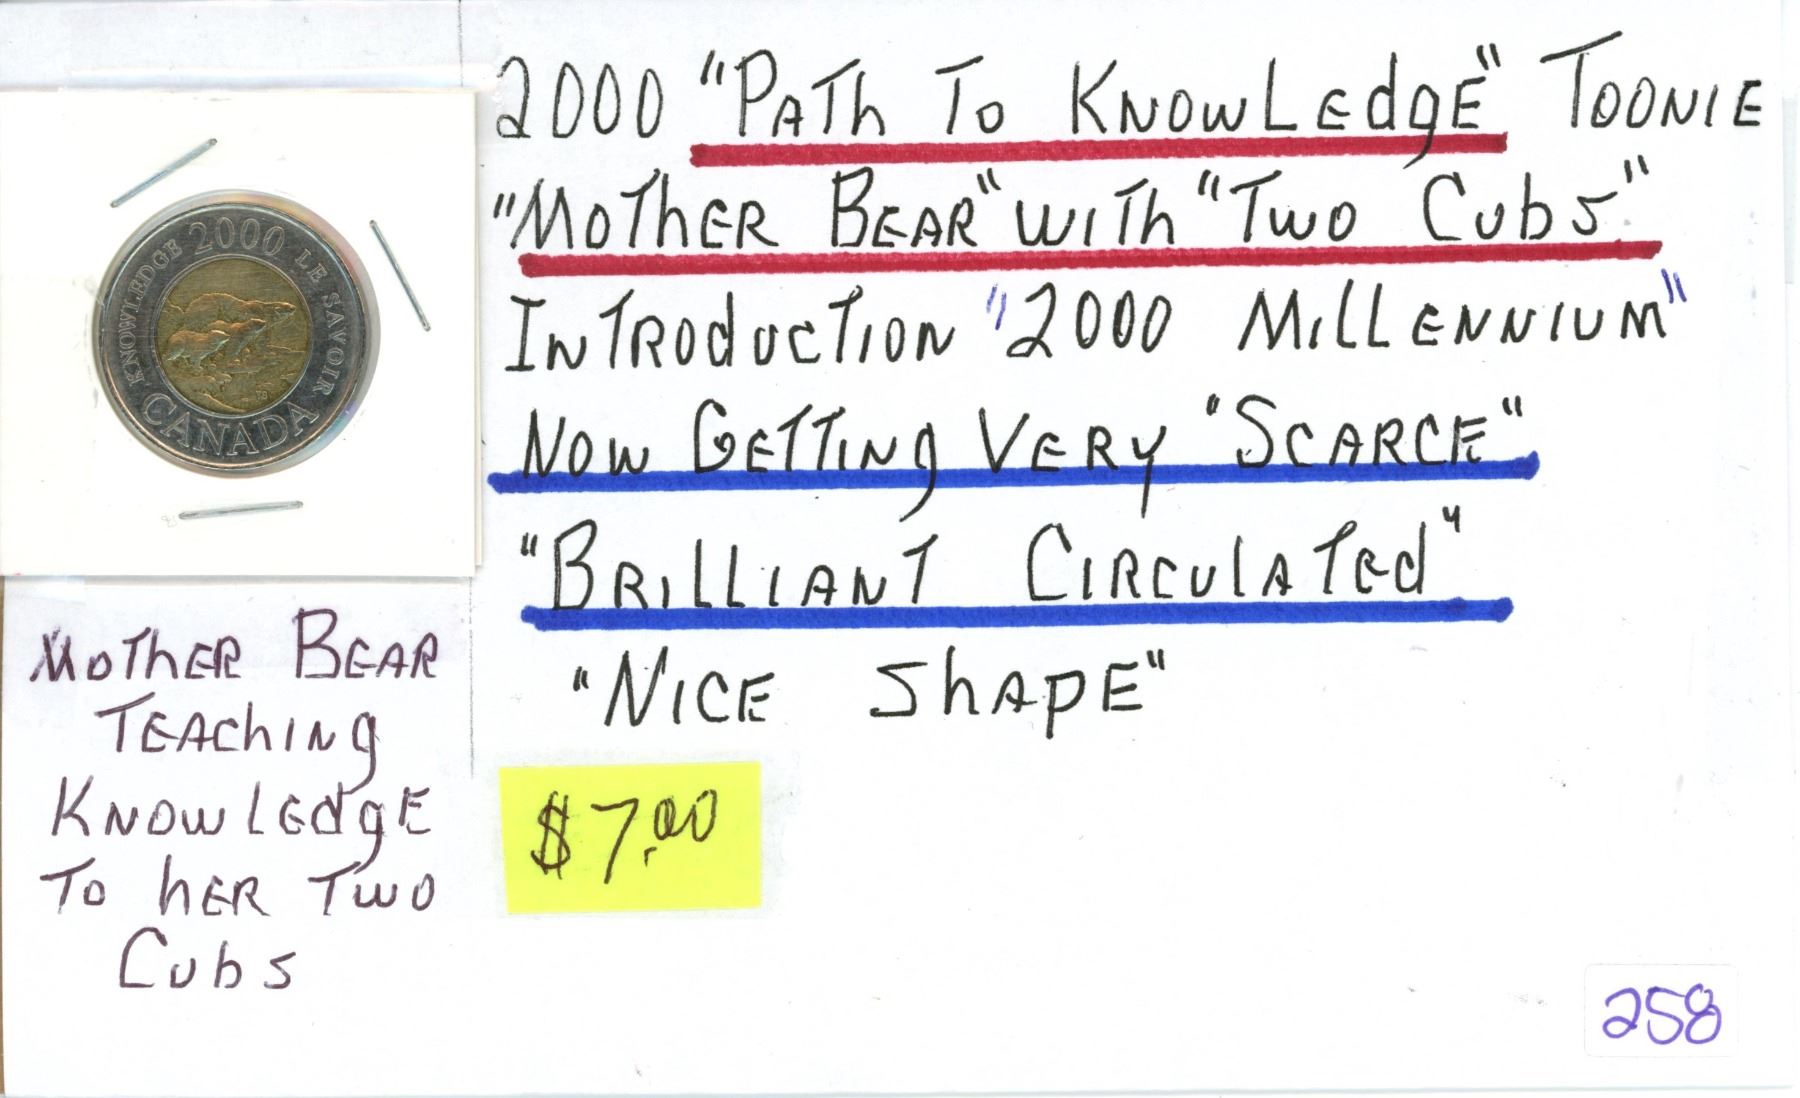 2000 "Path To Knowledge" Toonie
"Mother Bear" with "Two Cubs"
Introduction "2000 Millennium"
Now Getting Very "Scarce"
"Brilliant Circulated"
"Nice Shape"
$7.00
KNOWLEDGE 2000 LE SAVOIR
CANADA
Mother Bear
Teaching
Knowledge
To her Two
Cubs
258